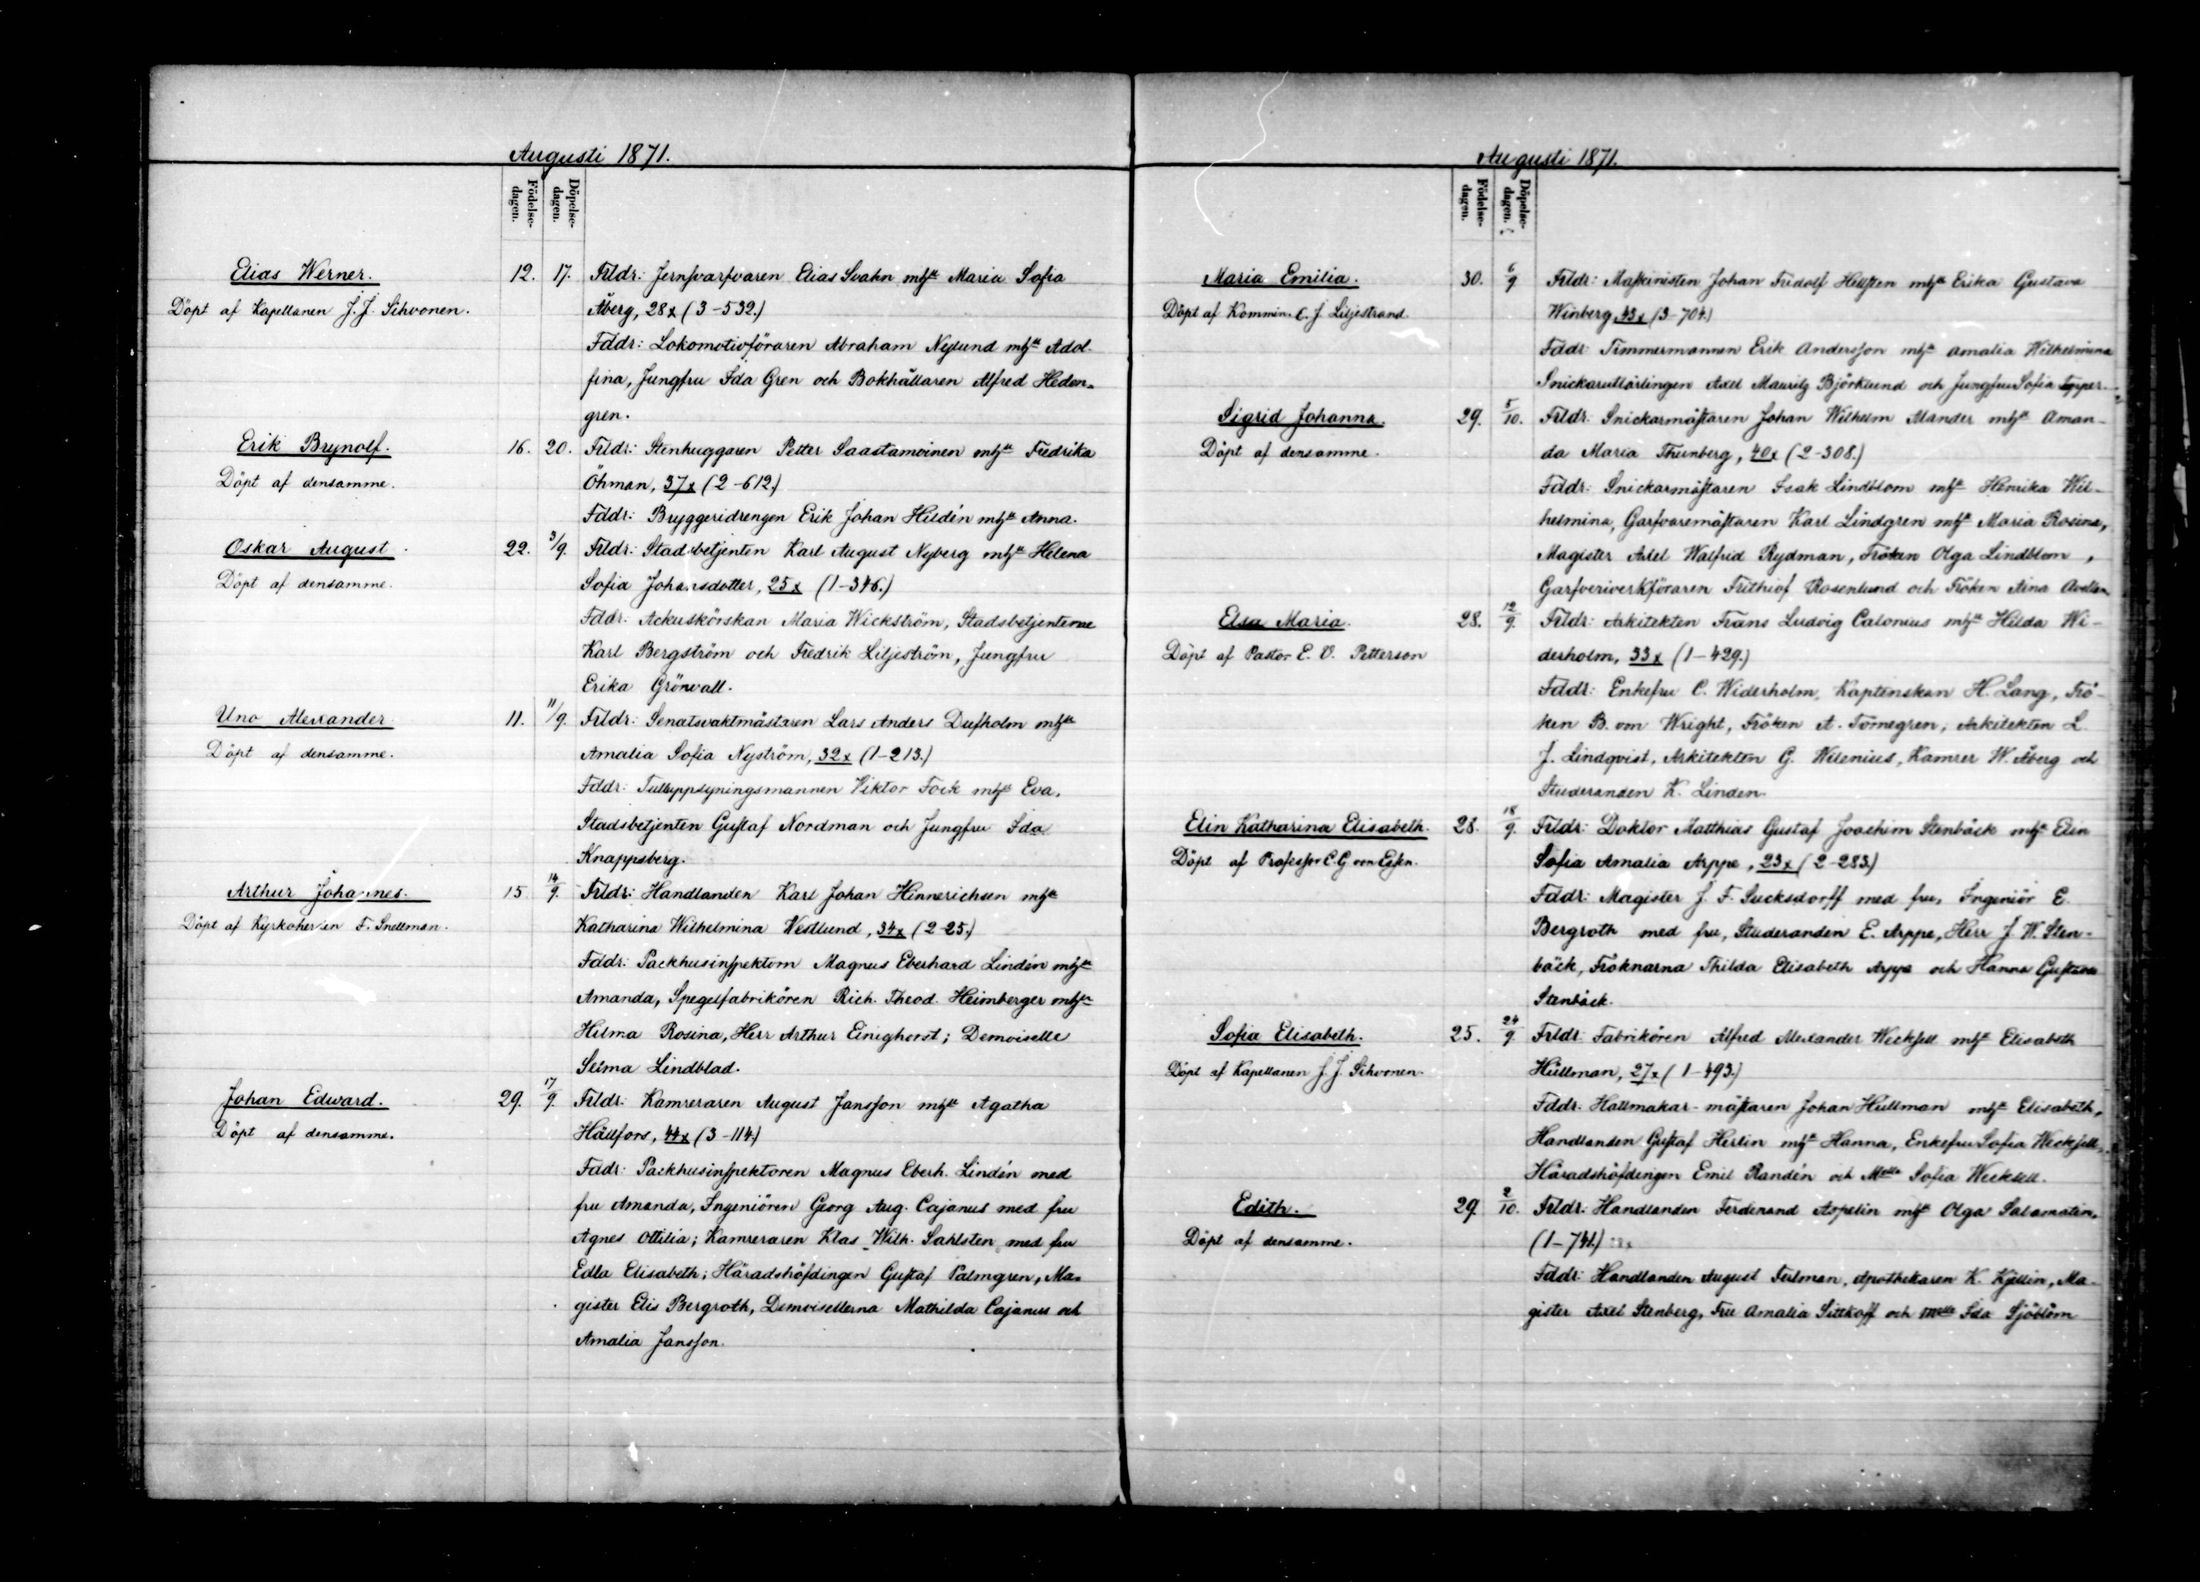 Augusti 1871.
Födelse-
dagen.
Döpelse-
dagen.
Elias Werner. 12. 17. Frldr: Jernsvarfvaren Elias Svahn mhst Maria Sofia
Döpt af Kapellanen J. J. Sihvonen. Åberg, 28x (3-532.)
Fddr: Lokomotivföraren Abraham Nylund mhst Adol-
fina, Jungfru Ida Gren och Bokhållaren Alfred Heden-
gren.
Erik Brynolf. 16. 20. Frldr: Stenhuggaren Petter Saastamoinen mhst Fredrika
Döpt af densamme. Öhman, 37x (2-612.)
Fddr: Bryggeridrengen Erik Johan Hildén mhst Anna.
Oskar August. 22. 3/9. Frldr: Stadsbetjenten Karl August Nyberg mhst Helena
Döpt af densamme. Sofia Johansdotter, 25x (1-346.)
Fddr: Ackuskörskan Maria Wickström, Stadsbetjenterne
Karl Bergström och Fredrik Liljeström, Jungfru
Erika Grönvall.
Uno Alexander. 11. 11/9. Frldr: Senatsvaktmästaren Lars Anders Dufholm mhst
Döpt af densamme. Amalia Sofia Nyström, 32x (1-213.)
Fddr: Tulluppsyningsmannen Viktor Fock mhst Eva,
Stadsbetjenten Gustaf Nordman och Jungfru Ida
Knappsberg.
Arthur Johannes. 15. 14/9. Frldr: Handlanden Karl Johan Hinnerichsen mhst
Döpt af Kyrkoherden F. Snellman. Katharina Wilhelmina Westlund, 34x (2-25.)
Fddr: Packhusinspektorn Magnus Eberhard Lindén mhst
Amanda, Spegelfabrikören Rich. Theod. Heimberger mhst
Hilma Rosina, Herr Arthur Einighorst; Demoiselle
Selma Lindblad.
Johan Edward. 29. 17/9. Frldr: Kamreraren August Jansson mhst Agatha
Döpt af densamme. Hällfors, 44x (3-114.)
Fddr: Packhusinspektoren Magnus Eberh. Lindén med
fru Amanda, Ingeniören Georg Aug. Cajanus med fru
Agnes Ottilia; Kamreraren Klas Wilh. Sahlsten med fru
Edla Elisabeth; Häradshöfdingen Gustaf Palmgren, Ma-
gister Elis Bergroth, Demoisellerna Mathilda Cajanus och
Amalia Jansson.
Augusti 1871.
Födelse-
dagen.
Döpelse-
dagen.
Maria Emilia. 30. 6/9 Frldr: Maskinisten Johan Fridolf Hellsten mhst Erika Gustava
Döpt af Kommin. C. J. Liljestrand. Winberg 43x (3-704.)
Fddr: Timmermannen Erik Andersson mhst Amalia Wilhelmina
Snickarutlärlingen Axel Mauritz Björklund och Jungfru Sofia
Sigrid Johanna. 29. 5/10. Frldr: Snickarmästaren Johan Wilhelm Alander mhst Aman-
Döpt af densamme. da Maria Thunberg, 40x (2-308.)
Fddr: Snickarmästaren Isak Lindblom mhst Henrika Wil-
helmina, Garfvaremästaren Karl Lindgren mhst Maria Rosina,
Magister Axel Walfrid Rydman, Fröken Olga Lindblom,
Garfveriverkföraren Frithiof Rosenlund och Fröken Aina
Elsa Maria. 28. 12/9. Frldr: Arkitekten Frans Ludvig Calonius mhst Hilda Wi-
Döpt af Pastor E. V. Petterson derholm, 33x (1-429.)
Fddr: Enkefru C. Widerholm, Kaptenskan H. Lang, Frö-
ken B. von Wright, Fröken A. Törnegren, Arkitekten L.
J. Lindqvist, Arkitekten G. Wilenius, Kamrer W. Åberg och
Studeranden K. Linden.
Elin Katharina Elisabeth. 28. 18/9. Frldr: Doktor Matthias Gustaf Joachim Stenbäck mhst Elin
Döpt af Professor C. G. von Essen. Sofia Amalia Arppe, 23x (2-283.)
Fddr: Magister J. F. Sucksdorff med fru, Ingeniör E.
Bergroth med fru, Studeranden E. Arppe, Herr J. W. Sten-
bäck, Fröknarna Thilda Elisabeth Arppe och Hanna Gustava
Stenbäck.
Sofia Elisabeth. 25. 24/9 Frldr: Fabrikören Alfred Alexander Wecksell mhst Elisabeth
Döpt af Kapellanen J. J. Sihvonen. Hüllman, 27x (1-493.)
Fddr: Hattmakar-mästaren Johan Hüllman mhst Elisabeth,
Handlanden Gustaf Herlin mhst Hanna, Enkefru Sofia Wecksell,
Häradshöfdingen Emil Randén och Mlle Sofia Wecksell.
Edith. 29. 2/10. Frldr: Handlanden Ferdinand Aspelin mhst Olga Salamatin,
Döpt af densamme. (1-741.)
Fddr: Handlanden August Feilman, Apothekaren K. Kjellin, Ma-
gister Axel Stenberg, Fru Amalia Sittkoff och Mlle Ida Sjöblom